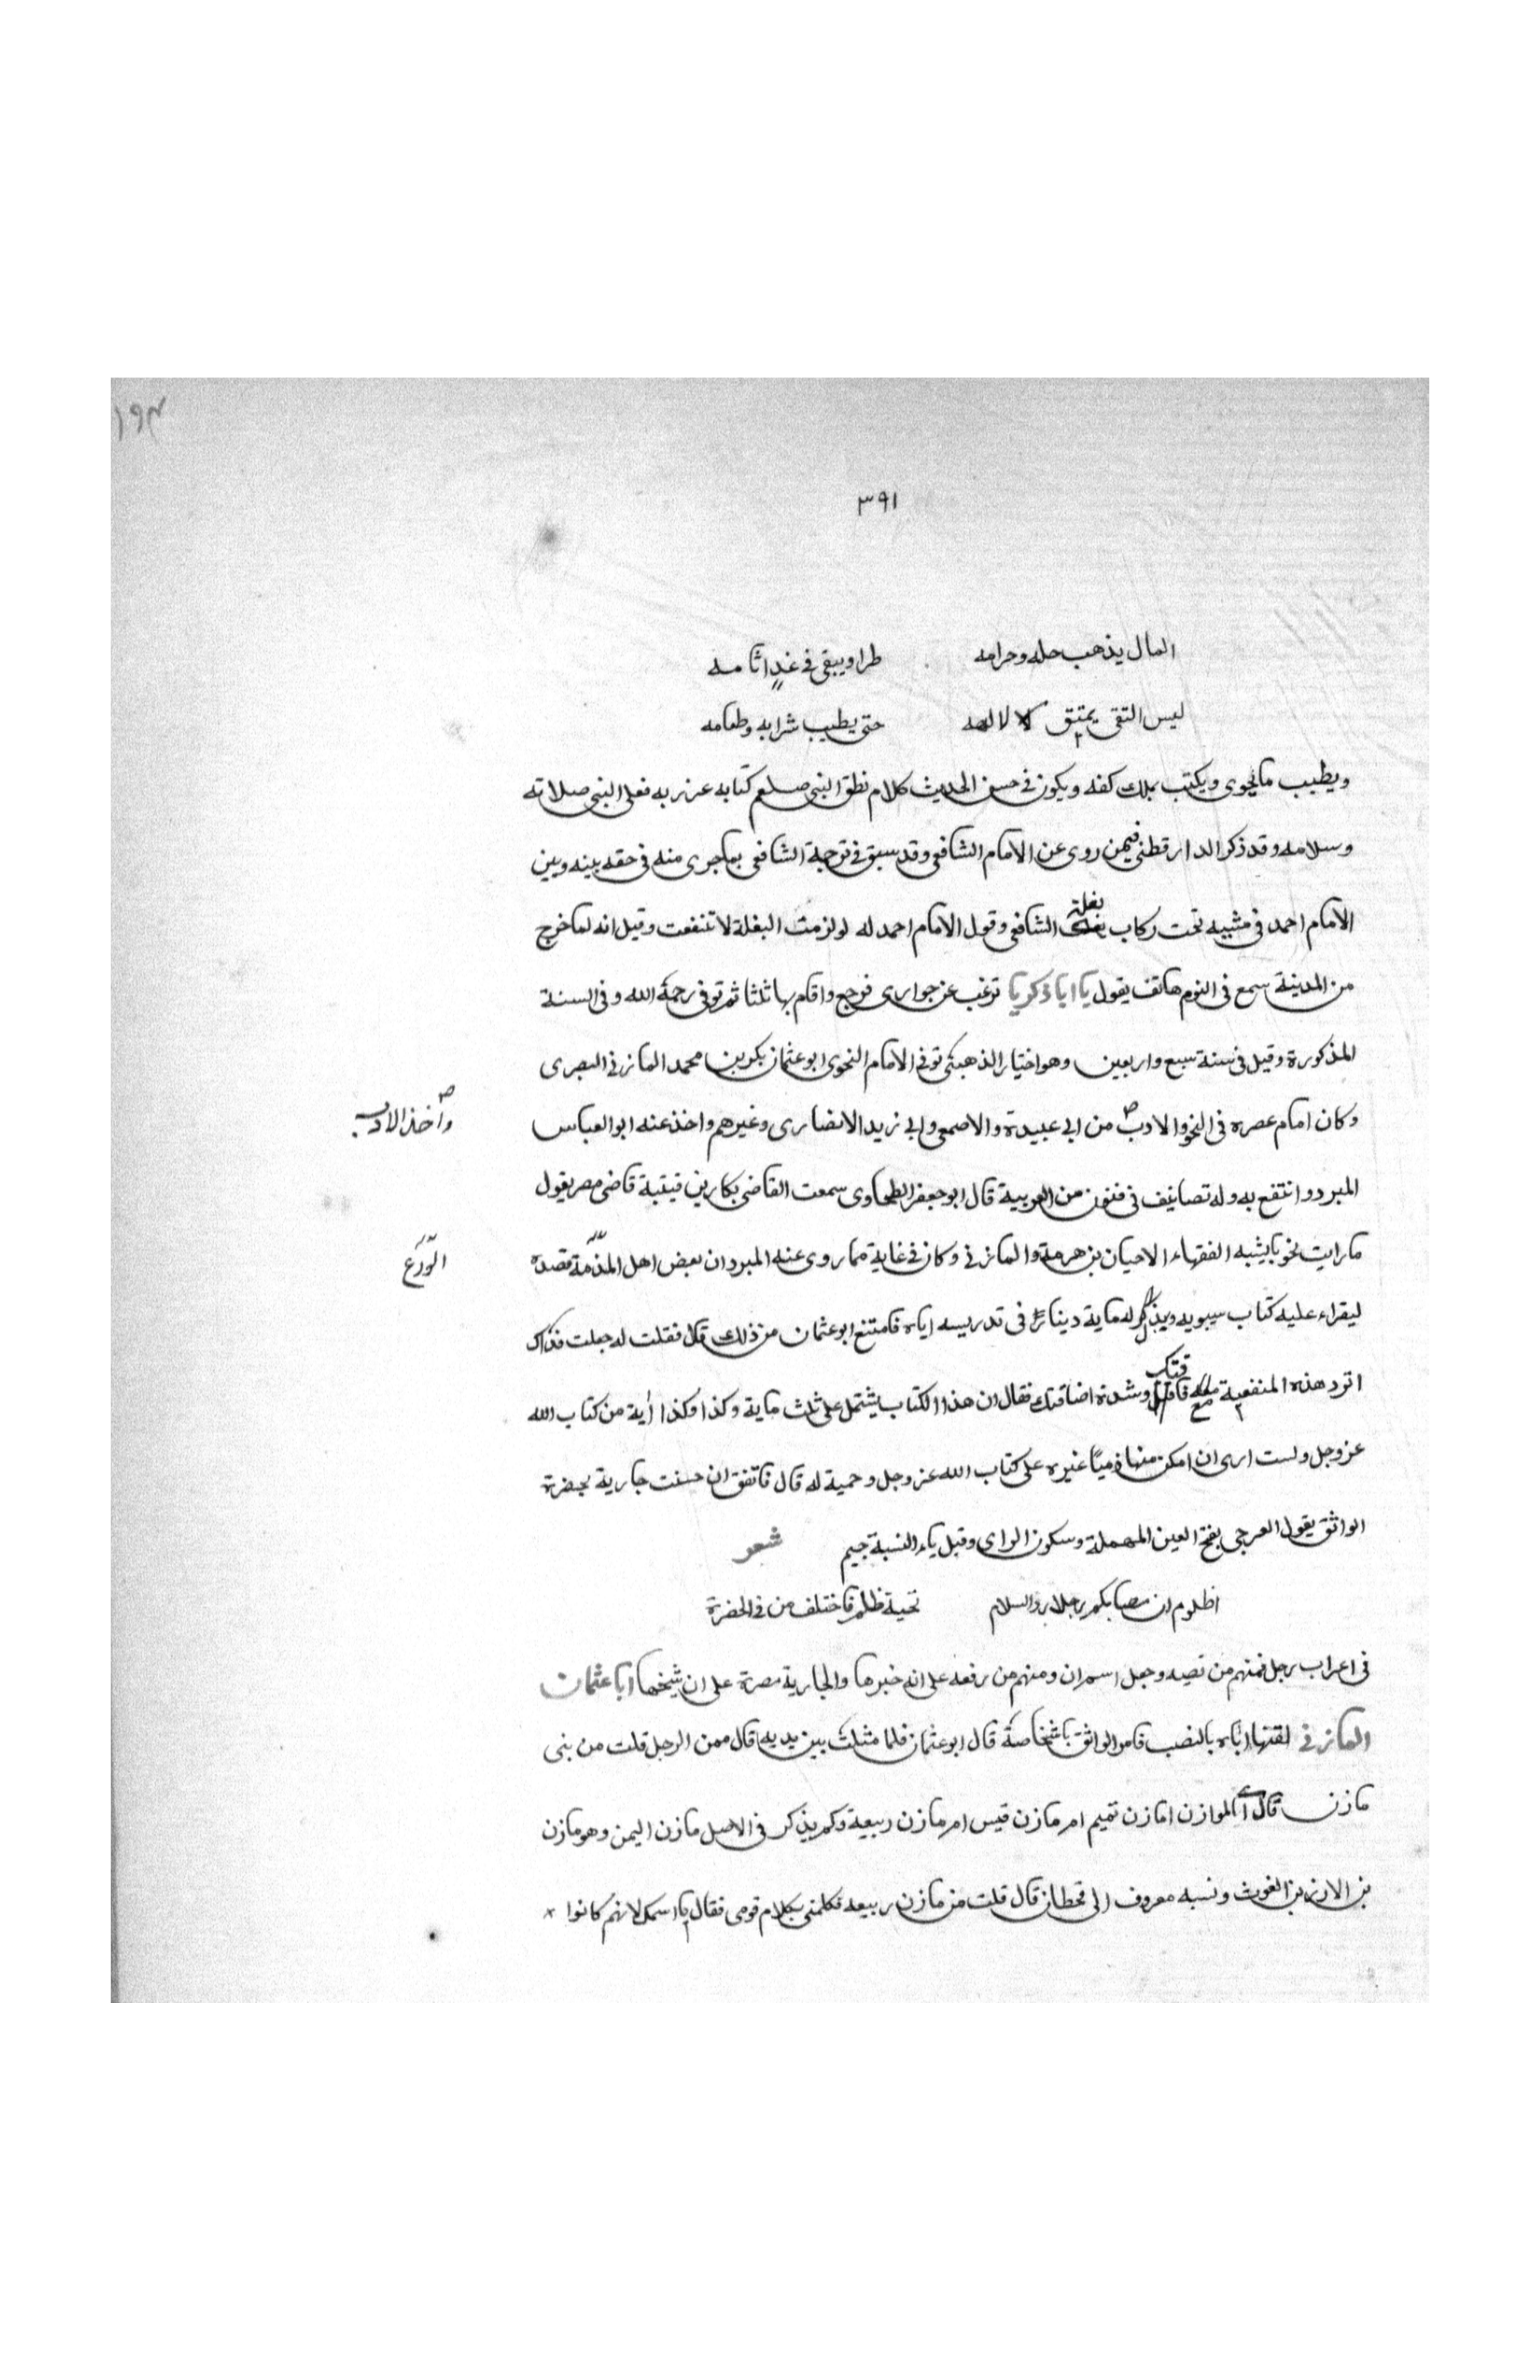 ١٩٣
٣٩١
المال يذهب حله وحرامه طرا ويبقى في غد اثامه
ليس التقى بمتق لالهه حتى يطيب شرابه وطعامه
ويطيب ما يحوى ويكتب بملك كفه ويكون في حسن الحديث كلامه نطق النبي صلعم كتابه عن ربه فعلى النبي صلاته
وسلامه وقد ذكر الدارقطني فيمن روى عن الامام الشافعي وقد سبق في ترجمة الشافعي بما جرى منه في حقه بينه وبين
الامام احمد في مشيه تحت ركاب بغلة الشافعي وقول الامام احمد له لو لزمت البغلة لانتفعت وقيل انه لما خرج
من المدينة سمع في النوم هاتف يقول يا ابا ذكريا ترغب عن جوارى فرجع واقام بها ثلثا ثم توفي رحمة الله وفي السنة
المذكورة وقيل في سنة سبع واربعين وهو اختيار الذهبي توفي الامام النحوى ابو عثمان بكر بن محمد المازني البصرى
وكان امام عصره في النحو والادب من ابي عبيدة والاصمعي وابي زيد الانصارى وغيرهم واخذ عنه ابو العباس
واخذ الادب
المبرد وانتفع به وله تصانيف في فنون من العربية قال ابو جعفر الطحاوى سمعت القاضي بكار بن قتيبة قاضي مصر يقول
ما رايت نحويا يشبه الفقهاء الا حيان بن هرمة والمازني وكان في غاية مما روى عنه المبرد ان بعض اهل الذمة قصده
الورع
ليقراء عليه كتاب سيبويه ويبذل له ماية دينار في تدريسه اياه فامتنع ابو عثمان من ذلك قال فقلت له جعلت فداك
اترد هذه المنفعة مع فاقتك وشدة اضاقتك فقال ان هذا الكتاب يشتمل على ثلث ماية وكذا وكذا اية من كتاب الله
عز وجل ولست ارى ان امكن منها ذميا غيره على كتاب الله عز وجل وحمية له قال فاتفق ان حسنت جارية بحضرة
الواثق يقول العرجى بفتح العين المهملة وسكون الراى وقبل ياء النسبة جيم شعر
اظلوم ان مصابكم رجلا رد السلام تحية ظلم فاختلف من في الحضرة
في اعراب رجل فمنهم من نصبه وجعل اسم ان ومنهم من رفعه على انه خبرها والجارية مصرة على ان شيخها ابا عثمان
المازني لقنها اياه بالنصب فامر الواثق باشخاصة قال ابو عثمان فلما مثلث بين يديه قال ممن الرجل قلت من بني
مازن قال اى الموازن امازن تميم ام مازن قيس ام مازن ربيعة ولم يذكر في الاصل مازن اليمن وهو مازن
بن الازد بن الغوث ونسبه معروف الى قحطان قال قلت من مازن ربيعه فكلمني بكلام قومى فقال با اسمك لانهم كانوا